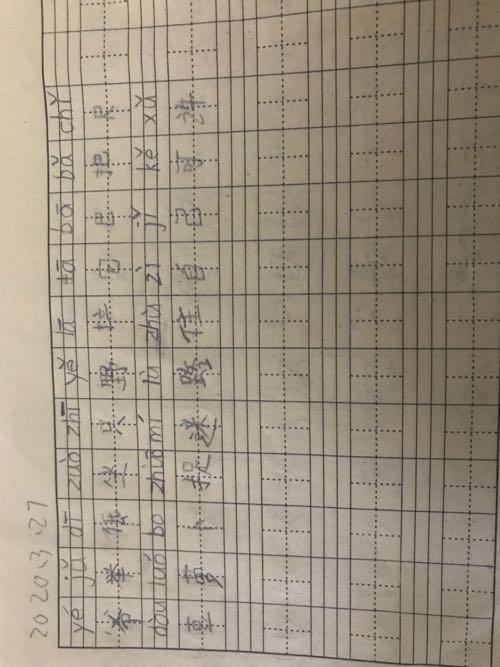 2020.3.27
yé jǔ dī zuò zhī yě lā tā bā bǎ chǐ
爷 举 低 坐 只 野 拉 它 巴 把 尺
dòu luó bo zhuō mí lù zhù zì jǐ kě xǔ
豆 萝 卜 捉 迷 路 住 自 己 可 许